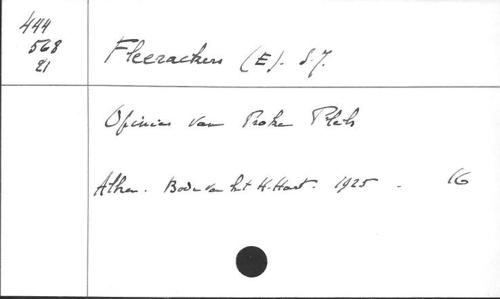 444
568
21
Fleerackers (E). S.J.
Opinies van Proke Plebs
Alken. Bode van het H. Hart. 1925 - 16